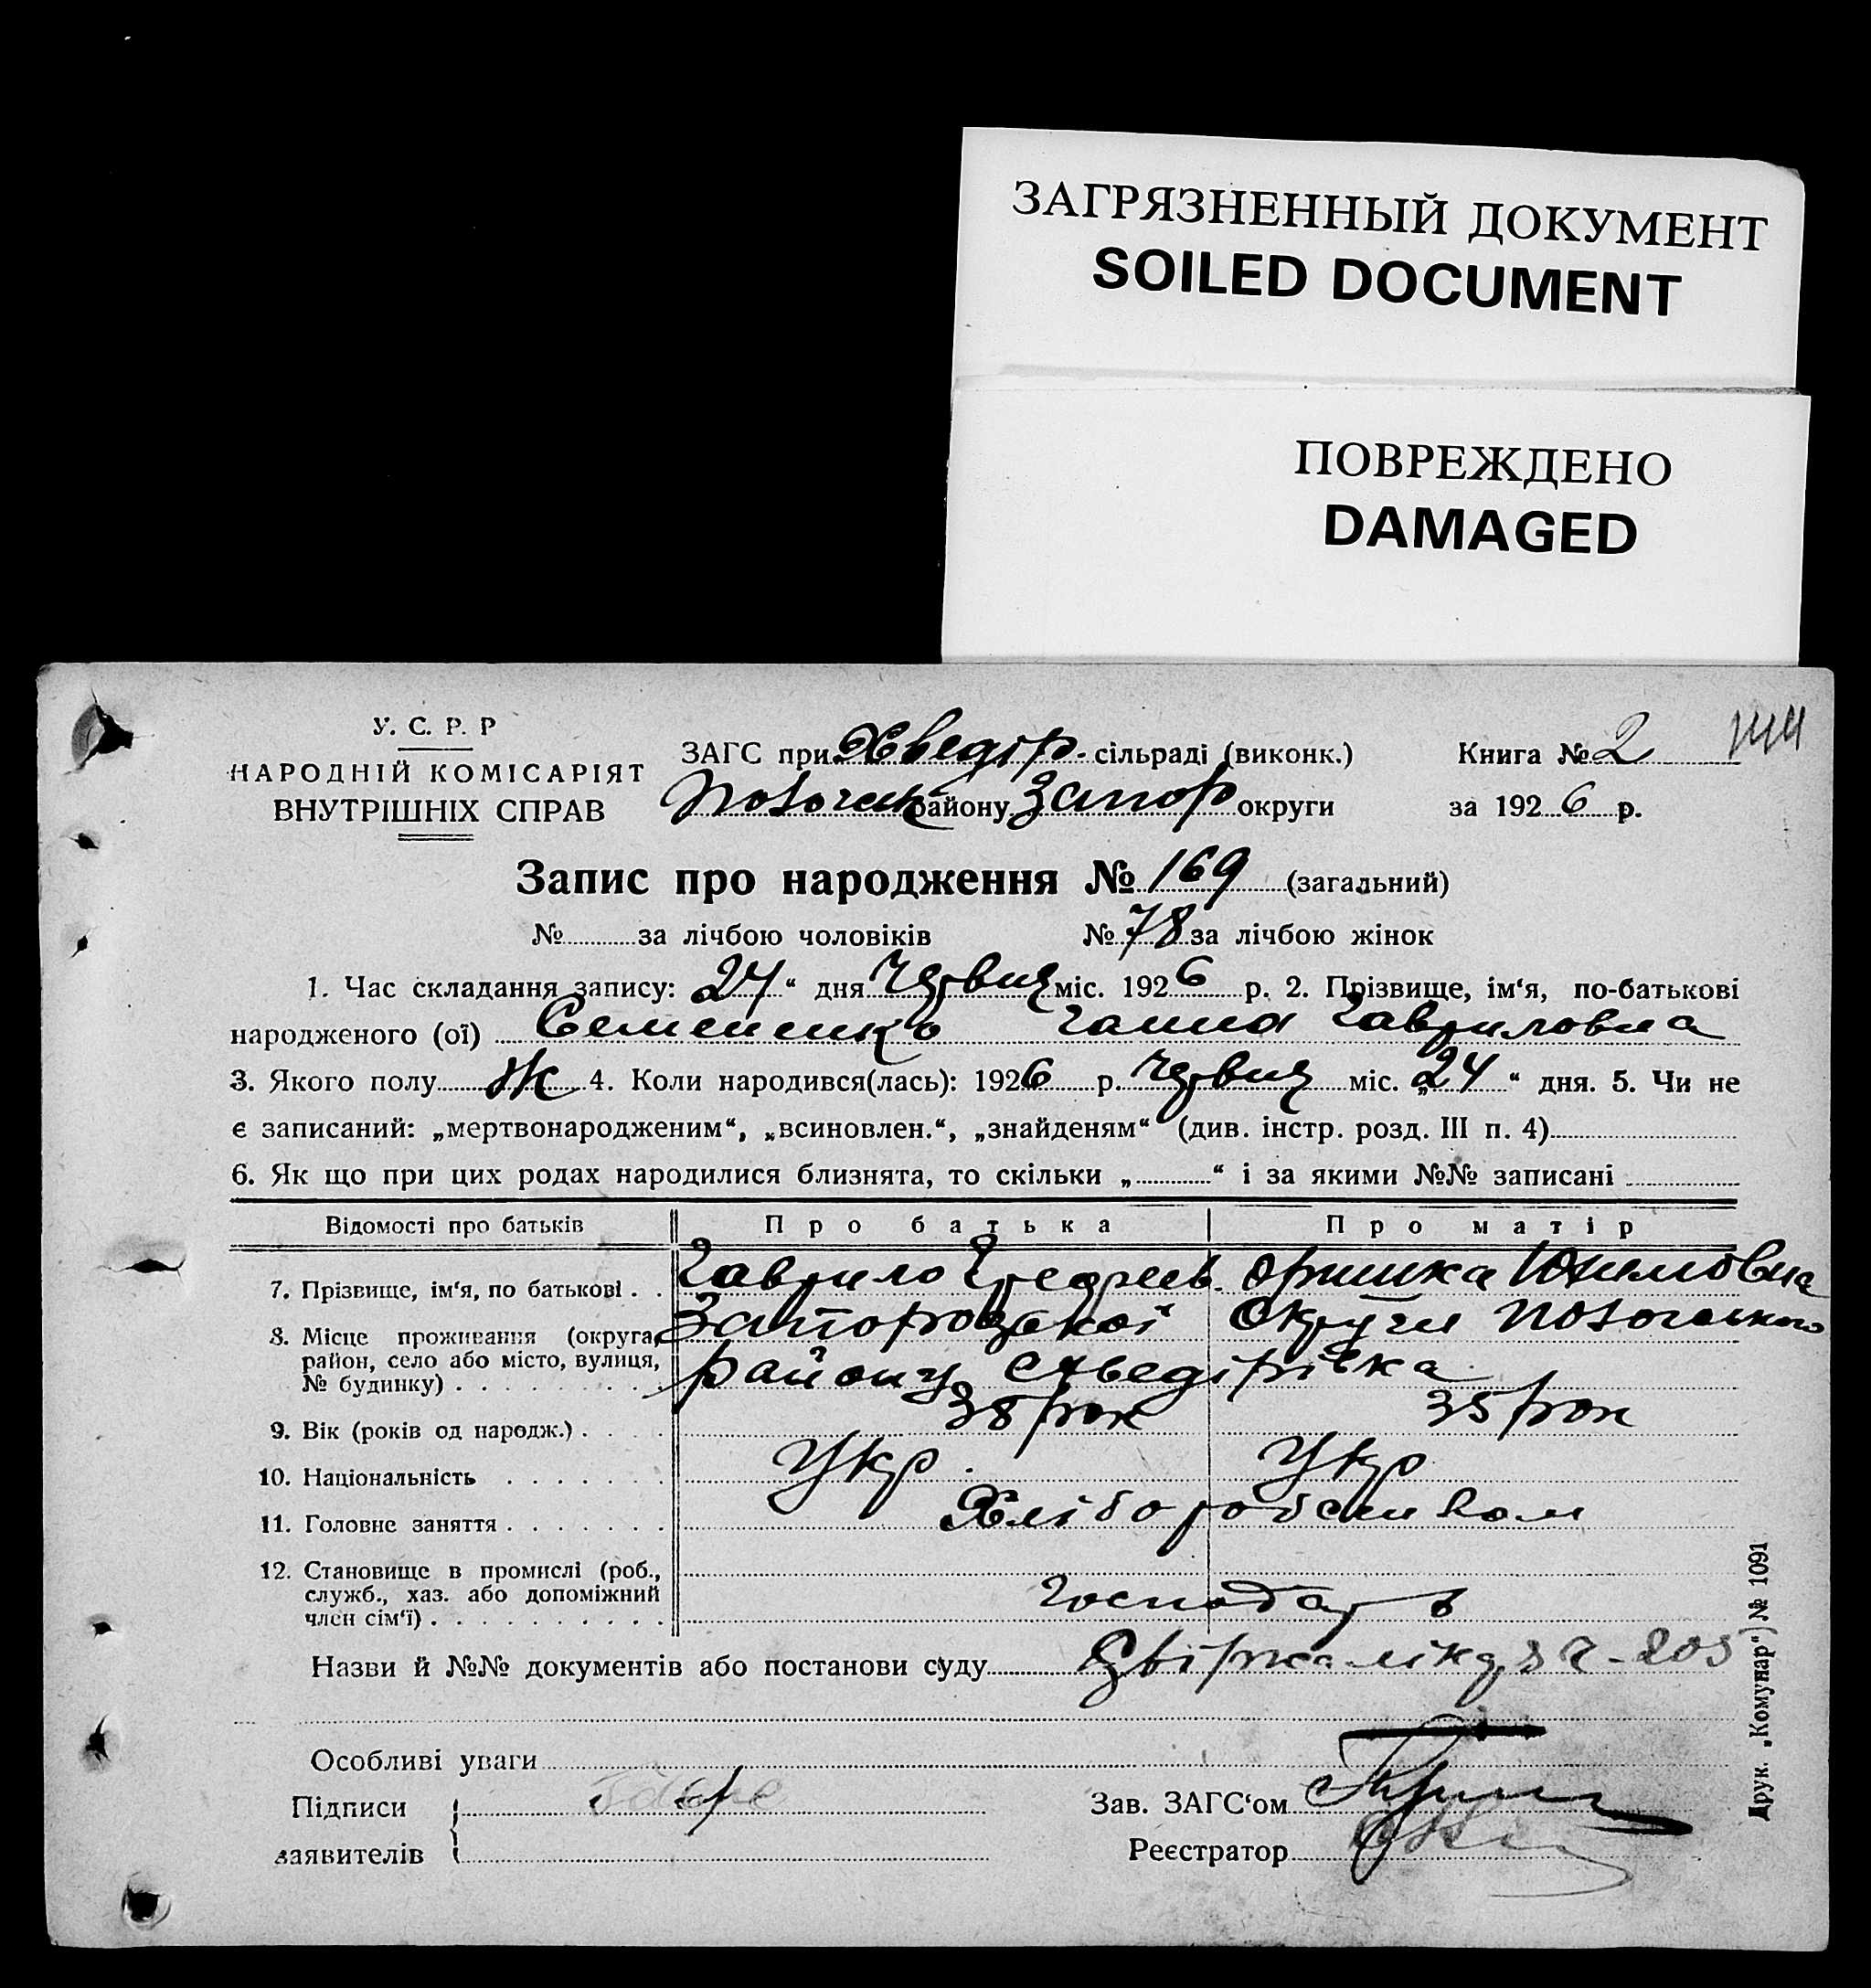 ЗАГРЯЗНЕННЫЙ ДОКУМЕНТ
SOILED DOCUMENT
ПОВРЕЖДЕНО
DAMAGED
У. С. Р. Р
НАРОДНІЙ КОМІСАРІЯТ
ВНУТРІШНІХ СПРАВ
ЗАГС при Хведір. сільраді (виконк.)
району Запор округи
Книга № 2
за 1926 р.
Запис про народження № 169 (загальний)
№ за лічбою чоловіків № 78 за лічбою жінок
1. Час складання запису: 24“ дня червця міс. 1926 р. 2. Прізвище, ім‘я, по-батькові
народженого (ої) Семененко Ганна Гавриловна
3. Якого полу Ж 4. Коли народився(лась): 1926 р. червця міс. „24“ дня. 5. Чи не
є записаний: „мертвонародженим“, „всиновлен.“, „знайденям“ (див. інстр. розд. III п. 4)
6. Як що при цих родах народилися близнята, то скільки „ “ і за якими №№ записані
Відомості про батьків Про батька Про матір
7. Прізвище, ім‘я, по батькові . . Гаврило Оришка Юхимовна
8. Місце проживання (округа, Запорозької Округи
район, село або місто, вулиця, району Хведірівка
№ будинку) . . . . . . . . .
9. Вік (років од народж.) . . . . 38 рок 35 рок
10. Національність . . . . . . . Укр. Укр
11. Головне заняття . . . . . . . Хліборобством
12. Становище в промислі (роб.,
служб., хаз. або допоміжний
член сім‘ї) . . . . . . . . . . Господарь
Назви й №№ документів або постанови суду
Особливі уваги
Підписи
заявителів
Зав. ЗАГС‘ом
Реєстратор
Друк. „Комунар“) № 1091